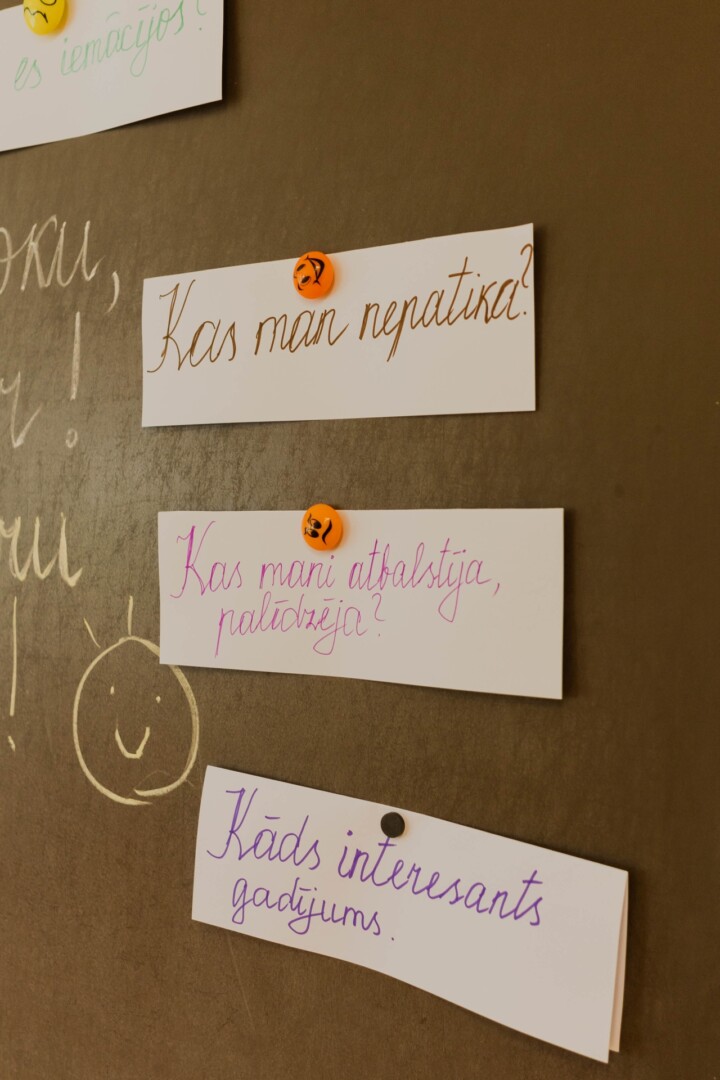 es iemācījos?
Kas man nepatika?
Kas mani atbalstīja,
palīdzēja?
Kāds interesants
gadījums.